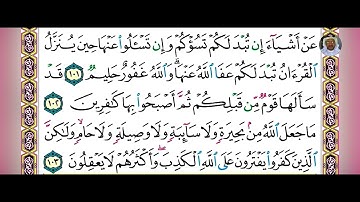 عَنْ أَشْيَآءَ إِن تُبْدَ لَكُمْ تَسُؤْكُمْ وَإِن تَسْـَٔلُوا۟ عَنْهَا حِينَ يُنَزَّلُ
ٱلْقُرْءَانُ تُبْدَ لَكُمْ عَفَا ٱللَّهُ عَنْهَا ۗ وَٱللَّهُ غَفُورٌ حَلِيمٌ ١٠١ قَدْ
سَأَلَهَا قَوْمٌ مِّن قَبْلِكُمْ ثُمَّ أَصْبَحُوا۟ بِهَا كَـٰفِرِينَ ١٠٢
مَا جَعَلَ ٱللَّهُ مِنۢ بَحِيرَةٍ وَلَا سَآئِبَةٍ وَلَا وَصِيلَةٍ وَلَا حَامٍ ۙ وَلَـٰكِنَّ
ٱلَّذِينَ كَفَرُوا۟ يَفْتَرُونَ عَلَى ٱللَّهِ ٱلْكَذِبَ ۖ وَأَكْثَرُهُمْ لَا يَعْقِلُونَ ١٠٣